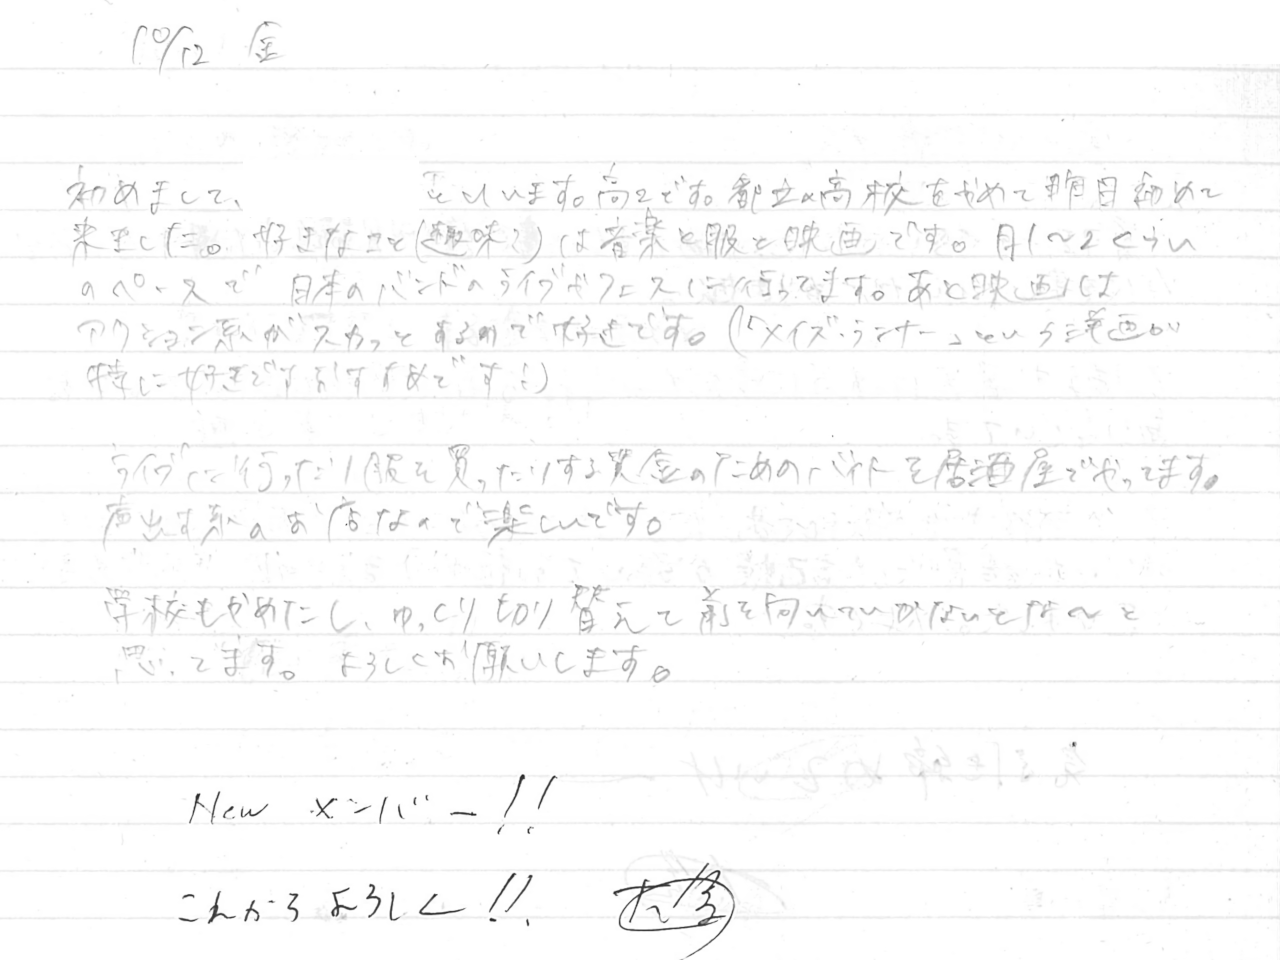 10/12 金
初めまして、 といいます。高2です。都立の高校をやめて昨日初めて
来ました。好きなこと(趣味?)は音楽と服と映画です。月1〜2くらい
のペースで 日本のバンドのライブやフェスに行ってます。あと映画は
アクション系がスカッとするので好きです。(「メイズ・ランナー」という洋画が
特に好きです おすすめです!)
ライブに行ったり服を買ったりする資金のためのバイトを居酒屋でやってます。
声出す系のお店なので楽しいです。
学校もやめたし、ゆっくり切り替えて前を向いていかないとな〜と
思ってます。よろしくお願いします。
New メンバー!!
これからよろしく!!